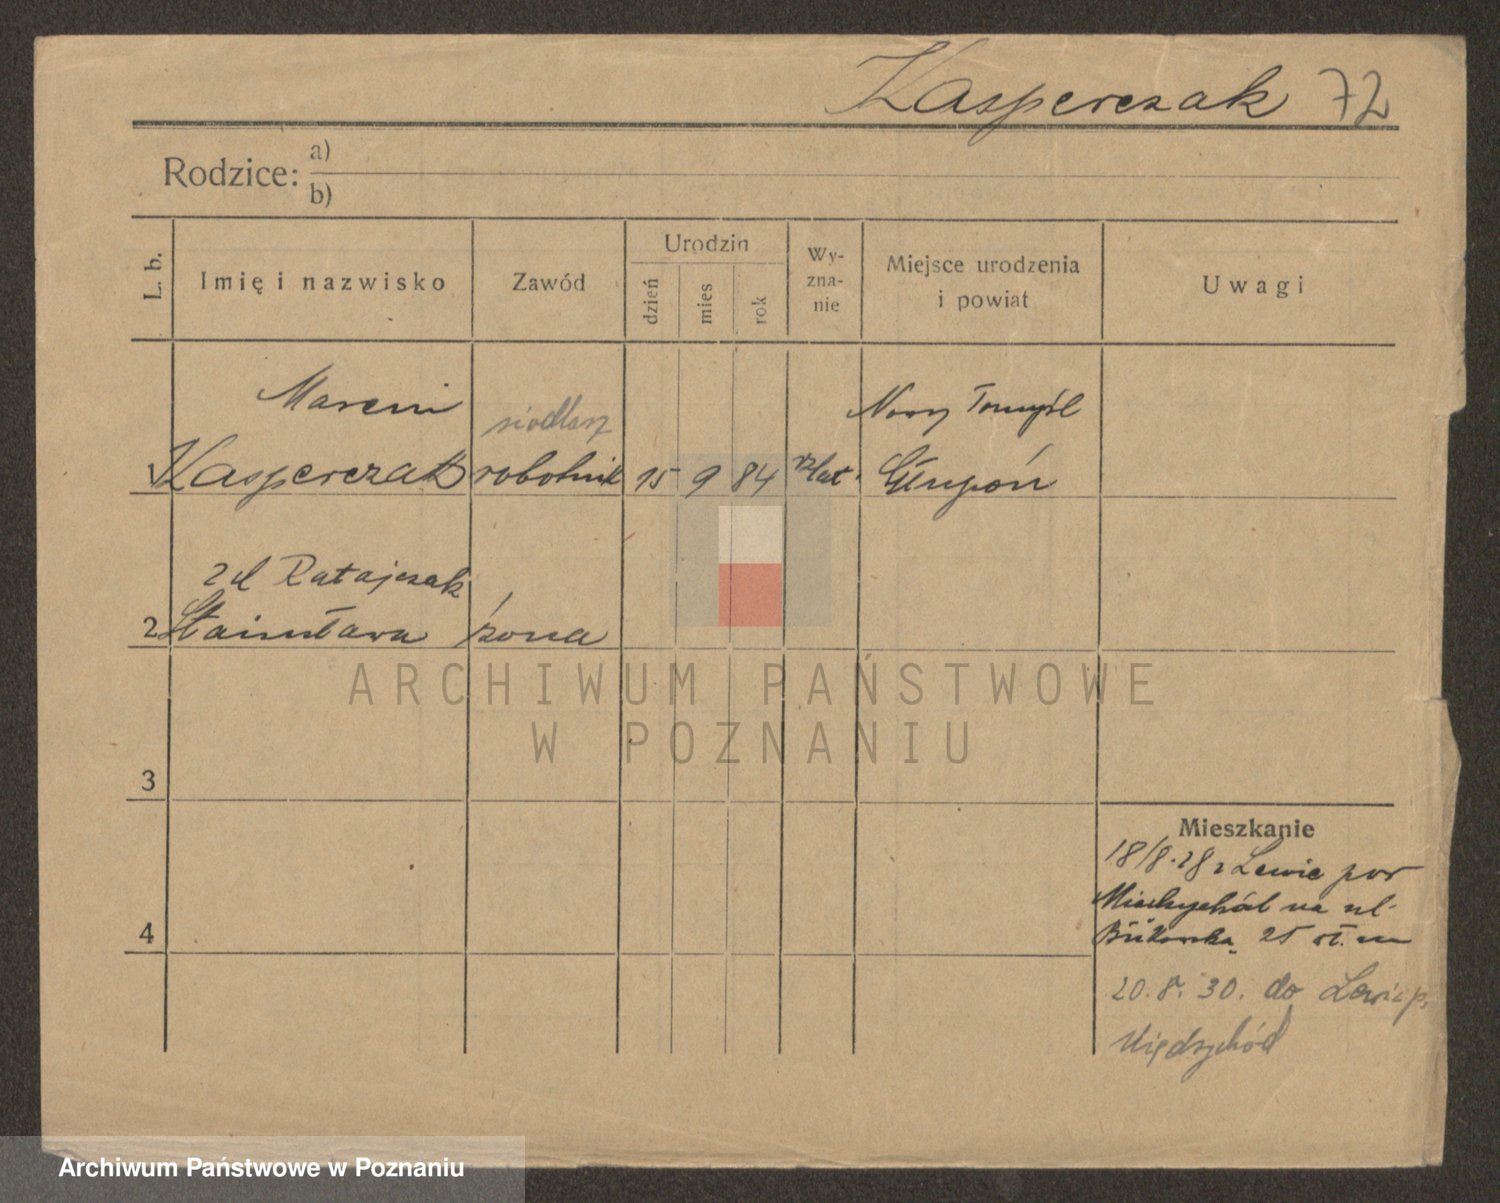 Kasperczak 72
Rodzice: a)
b)
L. b.
Imię i nazwisko
Zawód
Urodzin
dzień
mies
rok
Wy-
zna-
nie
Miejsce urodzenia
i powiat
Uwagi
Marcin
siodlarz
Nowy Tomyśl
1 Kasperczak robotnik 15 9 84 rz kat. Głupoń
zd Ratajczak
2 Stanisława żona
ARCHIWUM PAŃSTWOWE
W POZNANIU
3
Mieszkanie
18/8.28 z Lewic pow
Międzychód na ul.
4
Bukowska 25
20.8.30. do Lewic p.
Międzychód
Archiwum Państwowe w Poznaniu